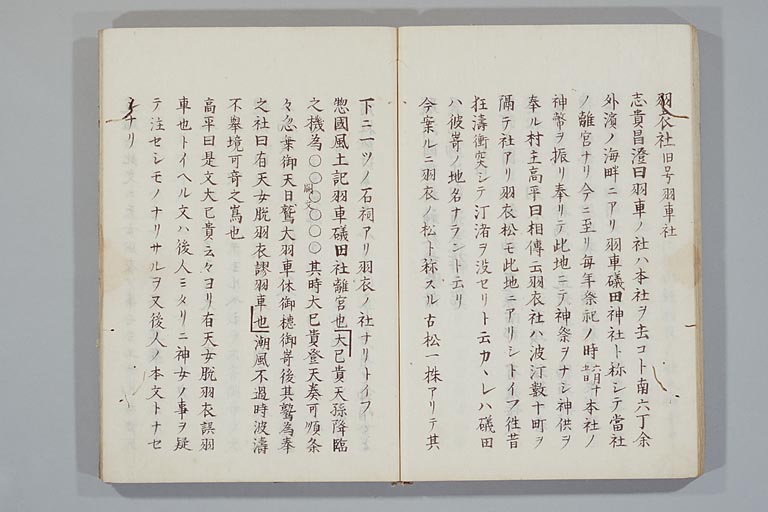 羽衣社旧号羽車社
志貴昌澄曰羽車ノ社ハ本社ヲ去コト南六丁余
外濱ノ海畔ニアリ羽車礒田神社ト称シテ當社
ノ離宮ナリ今ニ至リ毎年祭祀ノ時六月十五日本社ノ
神幣ヲ振リ奉リテ此地ニテ神祭ヲナシ神供ヲ
奉ル村主高平曰相傳云羽衣社ハ波汀數十町ヲ
隔テ社アリ羽衣松モ此地ニアリシトイフ徃昔
狂濤衝突シテ汀渚ヲ没セリト云カヽレハ礒田
ハ彼嵜ノ地名ナラント云リ
今案ルニ羽衣ノ松ト称スル古松一株アリテ其
下ニ一ツノ石祠アリ羽衣ノ社ナリトイフ
惣國風土記羽車礒田社離宮也大已貴天孫降臨
之機為〇〇〇〇〇〇闕文其時大已貴登天奏可順条
々忽乗御天日鷲大羽車休御穂御嵜後其鷲為奉
之社曰有天女脱羽衣謬羽車也潮風不過時波濤
不舉境可竒之嶌也
高平曰是文大已貴云々ヨリ有天女脱羽衣誤羽
車也トイヘル文ハ後人ミタリニ神女ノ事ヲ疑
テ注セシモノナリサルヲ又後人ノ本文トナセ
シナリ